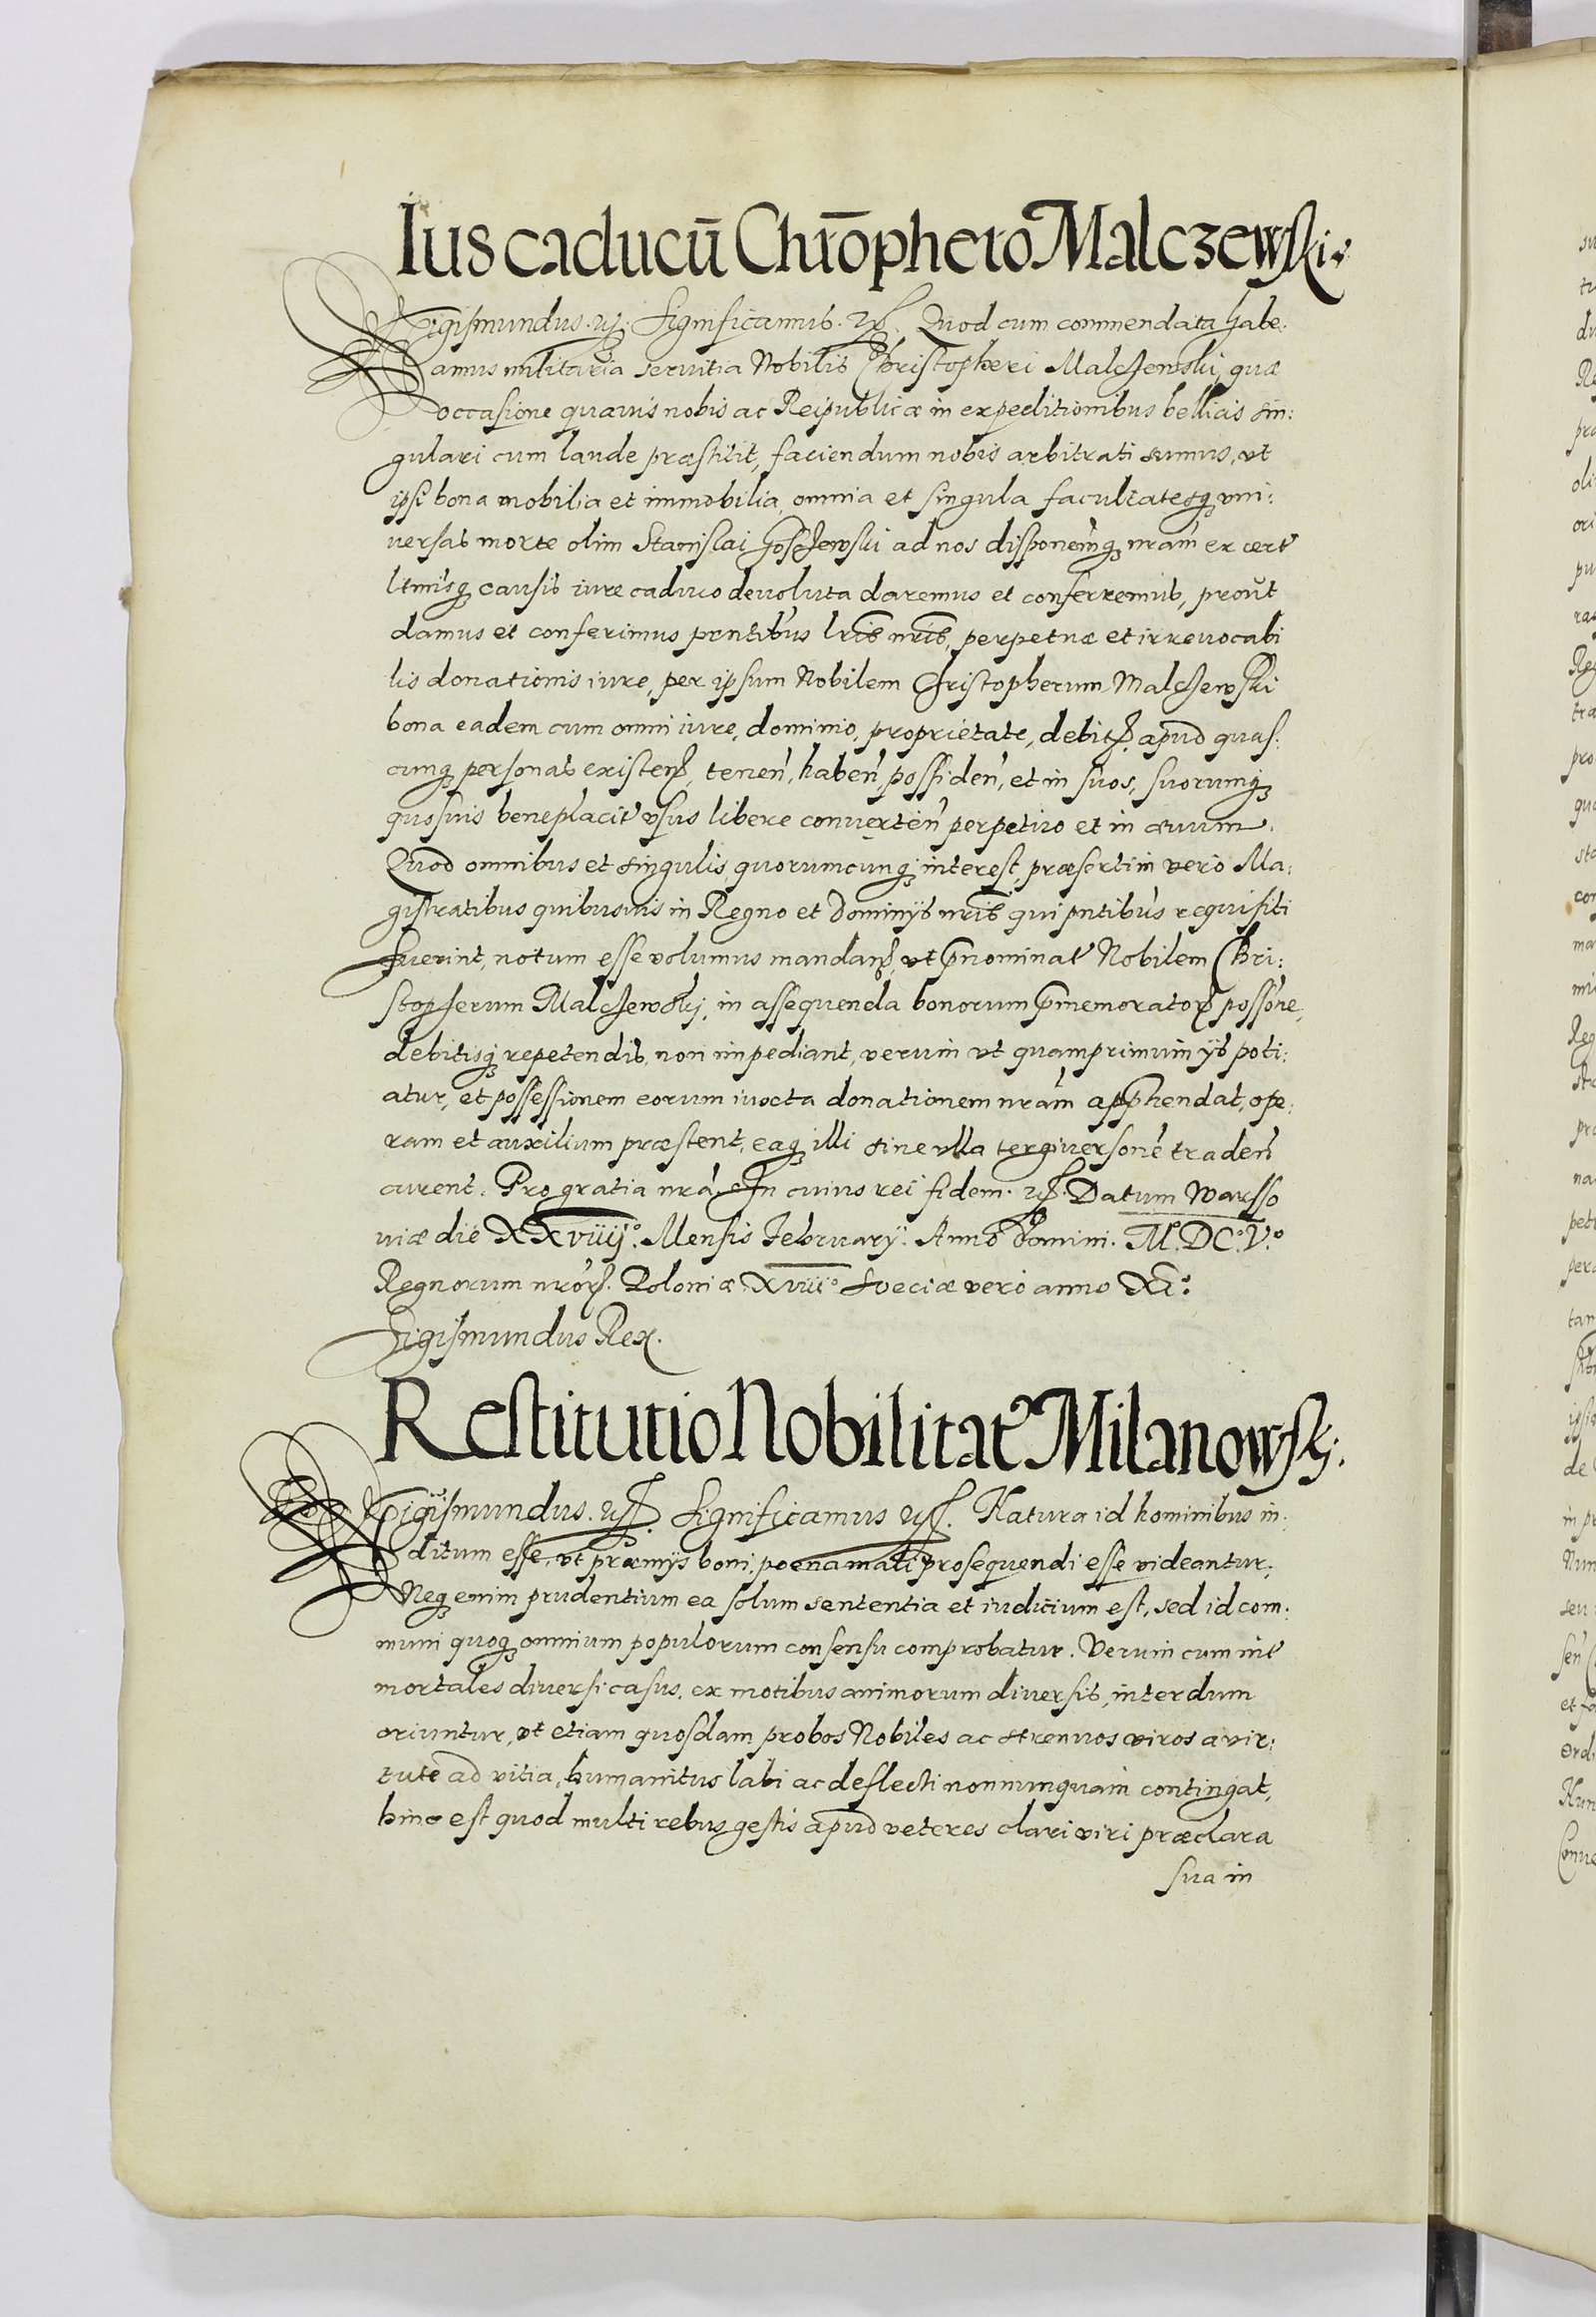 Ius caducū Chrōphero Malczewski.
Sigismundus. etc. Significamus. etc. Quod cum commendata habe:
amus militaria seruitia Nobilis Christopheri Malczewski, quæ
occasione quauis nobis ac Reipublicæ in expeditionibus bellicis sin:
gulari cum laude præstitit, faciendum nobis arbitrati sumus, vt
ipsi bona mobilia et immobilia, omnia et singula facultatesq; vni:
uersas morte olim Stanislai ad nos disponemq; nram ex cert
ltmisq; causis iure caduco deuoluta daremus et conferremus, prout
damus et conferimus pntibus lris nris, perpetuæ et irreuocabi
lis donationis iure, per ipsum Nobilem Christopherum Malczewski
bona eadem cum omni iure, dominio, proprietate, debitis apud quas:
cunq; personas existen, tenen, haben, possiden, et in suos, suorumq;
quosuis beneplacit vsus libere conuerten perpetuo et in æuum.
Quod omnibus et singulis, quorumcunq; interest, præsertim vero Ma:
gistratibus quibusuis in Regno et Dominijs nris qui pntibus requisiti
fuerint, notum esse volumus mandan, vt pnominat Nobilem Chri:
stopherum Malczewskj, in assequenda bonorum pmemorator possone,
debitisq; repetendis, non impediant, verum vt quamprimum ijs poti:
atur, et possessionem eorum iuxta donationem nram apphendat, ope:
ram et auxilium præstent, eaq; illi sine vlla tergiuersone traden
curent. Pro gratia nra. In cuius rei fidem. etc. Datum Warsso
uiæ die XXviiij.° Mensis February. Anno Domini. M.DC.°V.°
Regnorum nror. Poloniæ Xviii° Sveciæ vero anno XI.°
Sigismundus Rex.
Restitutio Nobilitat Milanowskj.
Sigismundus. etc. Significamus etc. Natura id hominibus in:
ditum esse, vt præmijs boni, poena mali prosequendi esse videantur.
Neq; enim prudentium ea solum sententia et iudicium est, sed id com:
muni quoq; omnium populorum consensu comprobatur. Verum cum int
mortales diuersi casus, ex motibus animorum diuersis, interdum
oriuntur, vt etiam quosdam probos Nobiles ac strenuos viros a vir:
tute ad vitia, humanitus labi ac deflecti nonnunquam contingat,
hinc est quod multi rebus gestis apud veteres clari viri præclara
sua in